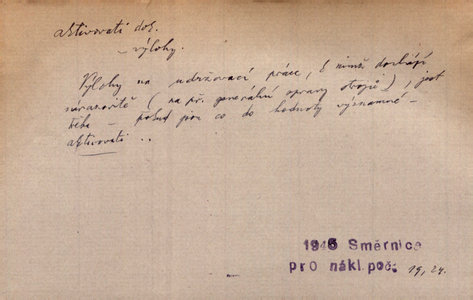 aktivovati dos.
— výlohy.
Výlohy na udržovací práce, k nimž dochází
nárazovitě (na př. generální opravy strojů), jest
třeba — pokud jsou co do hodnoty významné —
aktivovati ..
1946 Směrnica
pro nákl. poč. 19, 24.